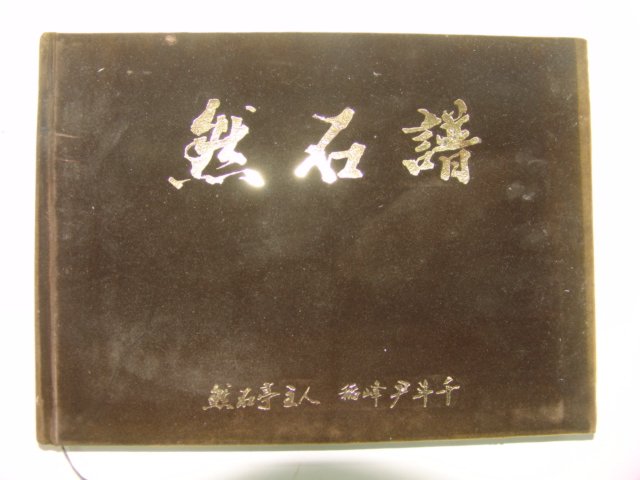 然石譜
然石亭主人 峰尹千